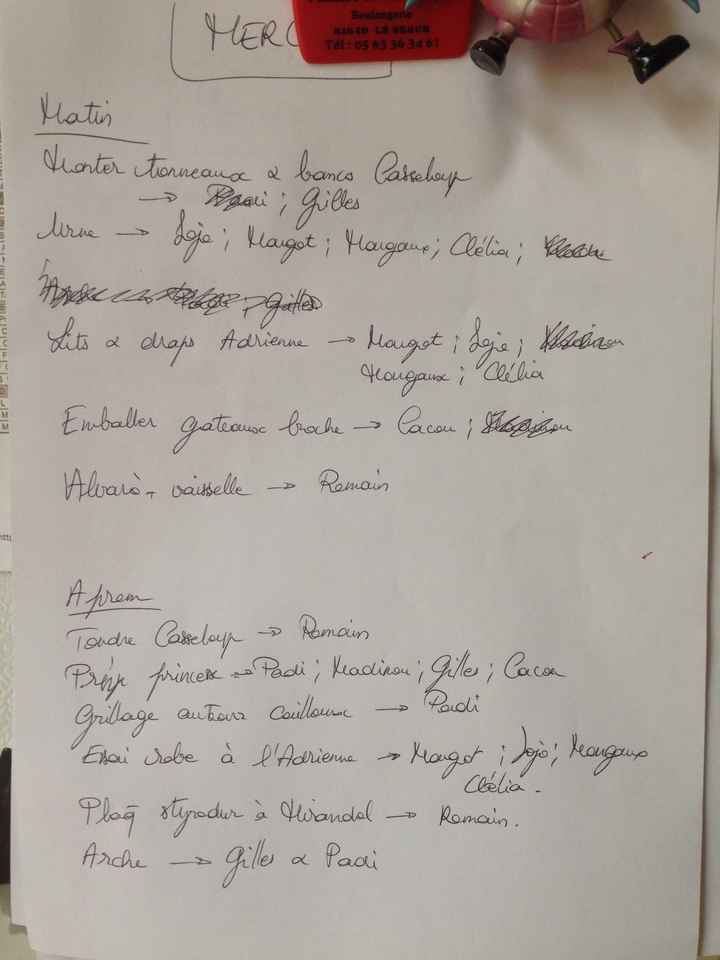 MERC
Boulangerie
Tél : 05 63 36 34 61
Matin
Monter tonneaux & bancs Casseloup
→ ; Gilles
Urne → Jojo ; Margot ; Margaux ; Clélia ;
Lits & draps Adrienne → Margot ; Jojo ;
Margaux ; Clélia
Emballer gateaux broche → Cacou ;
vaisselle → Romain
Aprem
Tondre Casseloup → Romain
princesse → Padi ; Madinou ; Gilles ; Cacou
Grillage autour cailloux → Padi
Essai robe à l'Adrienne → Margot ; Jojo ; Margaux
Clélia.
Plaq styrodur à Mirandol → Romain.
Arche → Gilles & Padi